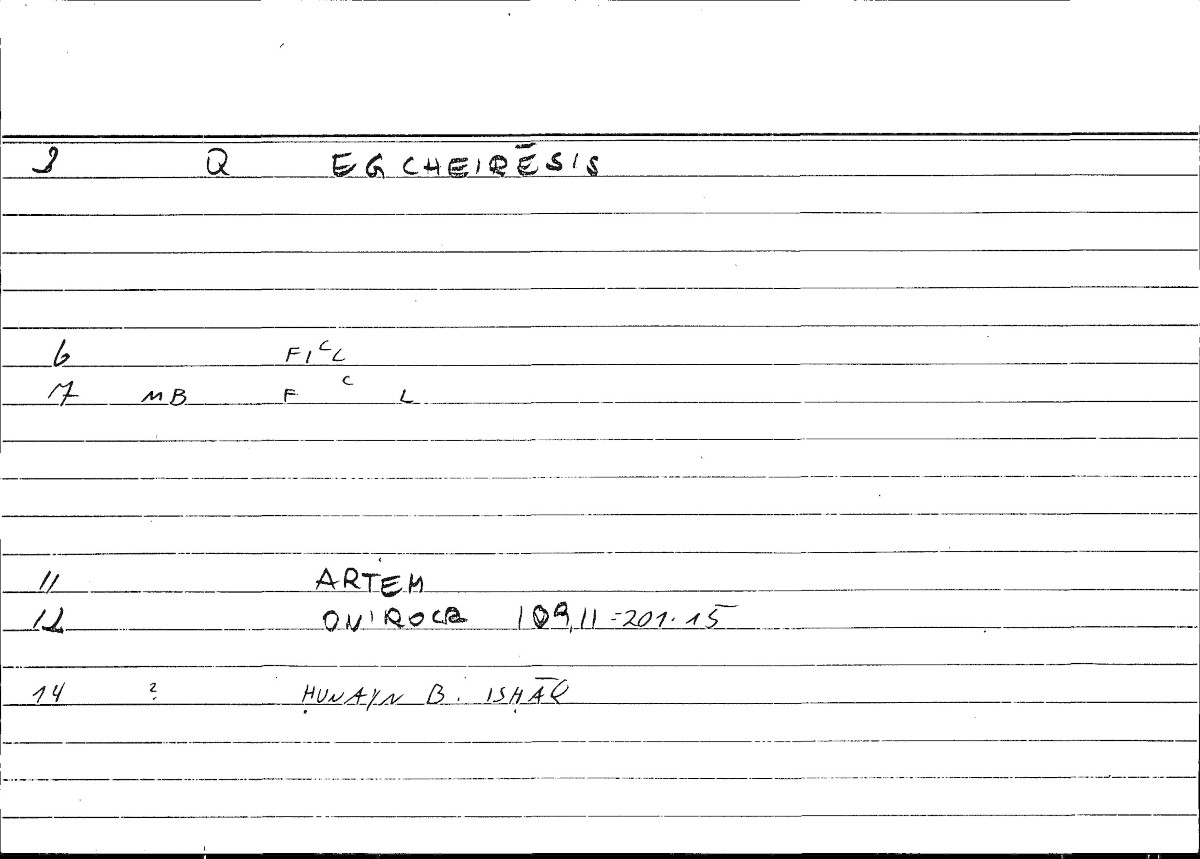 3 Q EGCHEIRĒSIS
6 FIᶜL
7 MB F ᶜ L
11 ARTEM
12 ONIROCR 109,11=201.15
14 ? ḤUNAYN B. ISḤĀQ